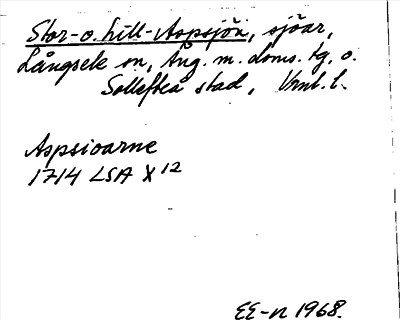 Stor- o. Lill-Aspsjön, sjöar,
Långsele sn, Ång. m. doms. tg. o.
Sollefteå stad, Vrnl. l.
Aspsioarne
1714 LSA X 12
EE-n 1968.